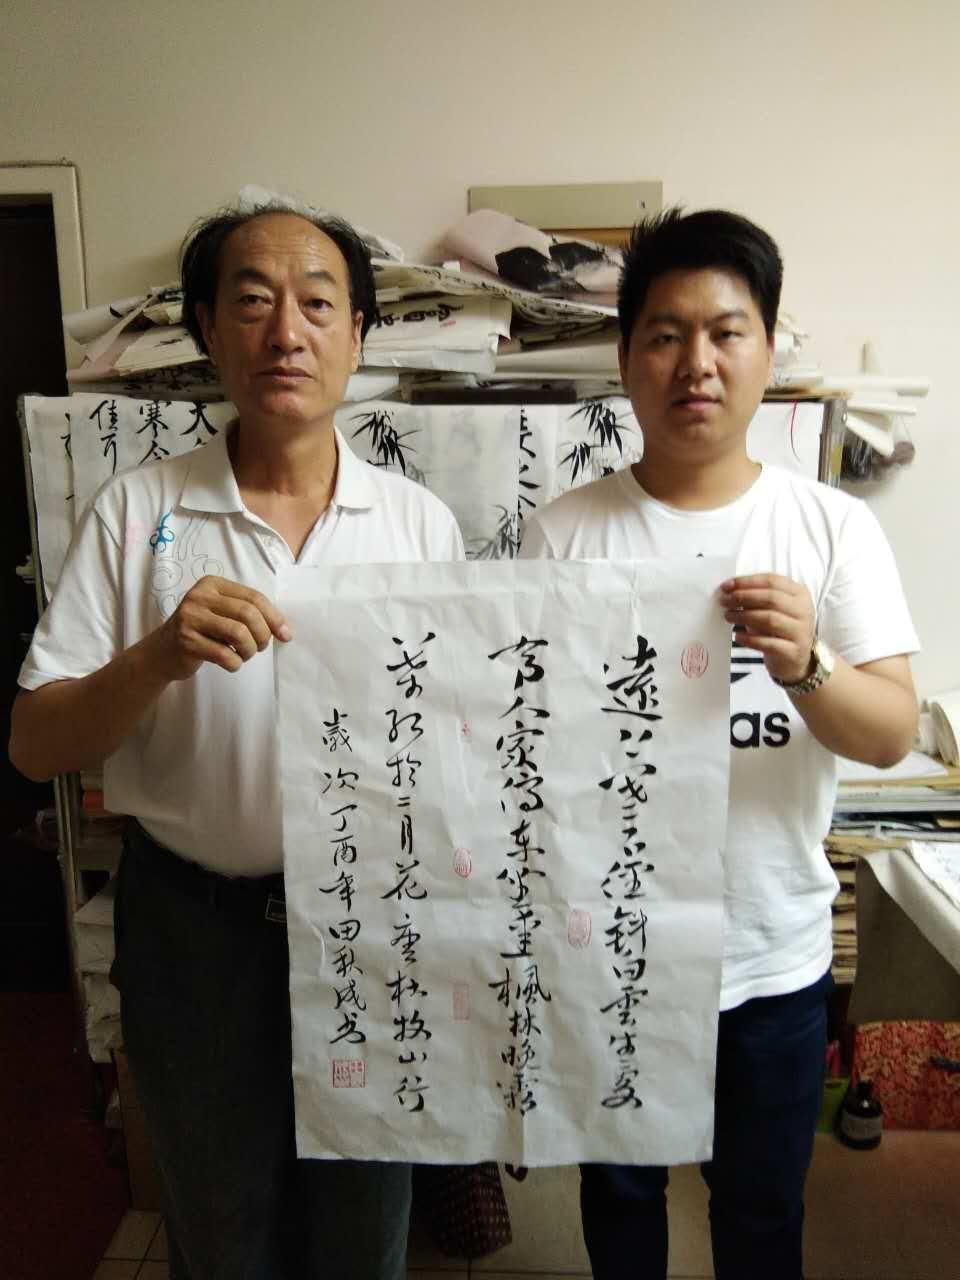 遠上寒山石徑斜白雲生處
有人家停車坐愛楓林晚霜
葉紅於二月花唐杜牧山行
歲次丁酉年田秋成书
das